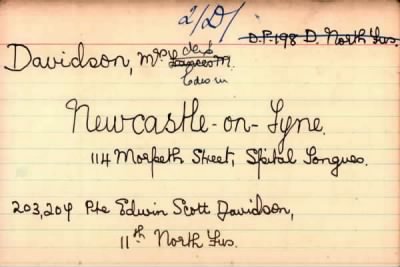 2/D/
D.P. 198 D. North Fus.
Davidson, Mrs
Edwin
Newcastle-on-Tyne.
114 Morpeth Street, Spital Tongues.
203,204 Pte Edwin Scott Davidson,
11th North Fus.